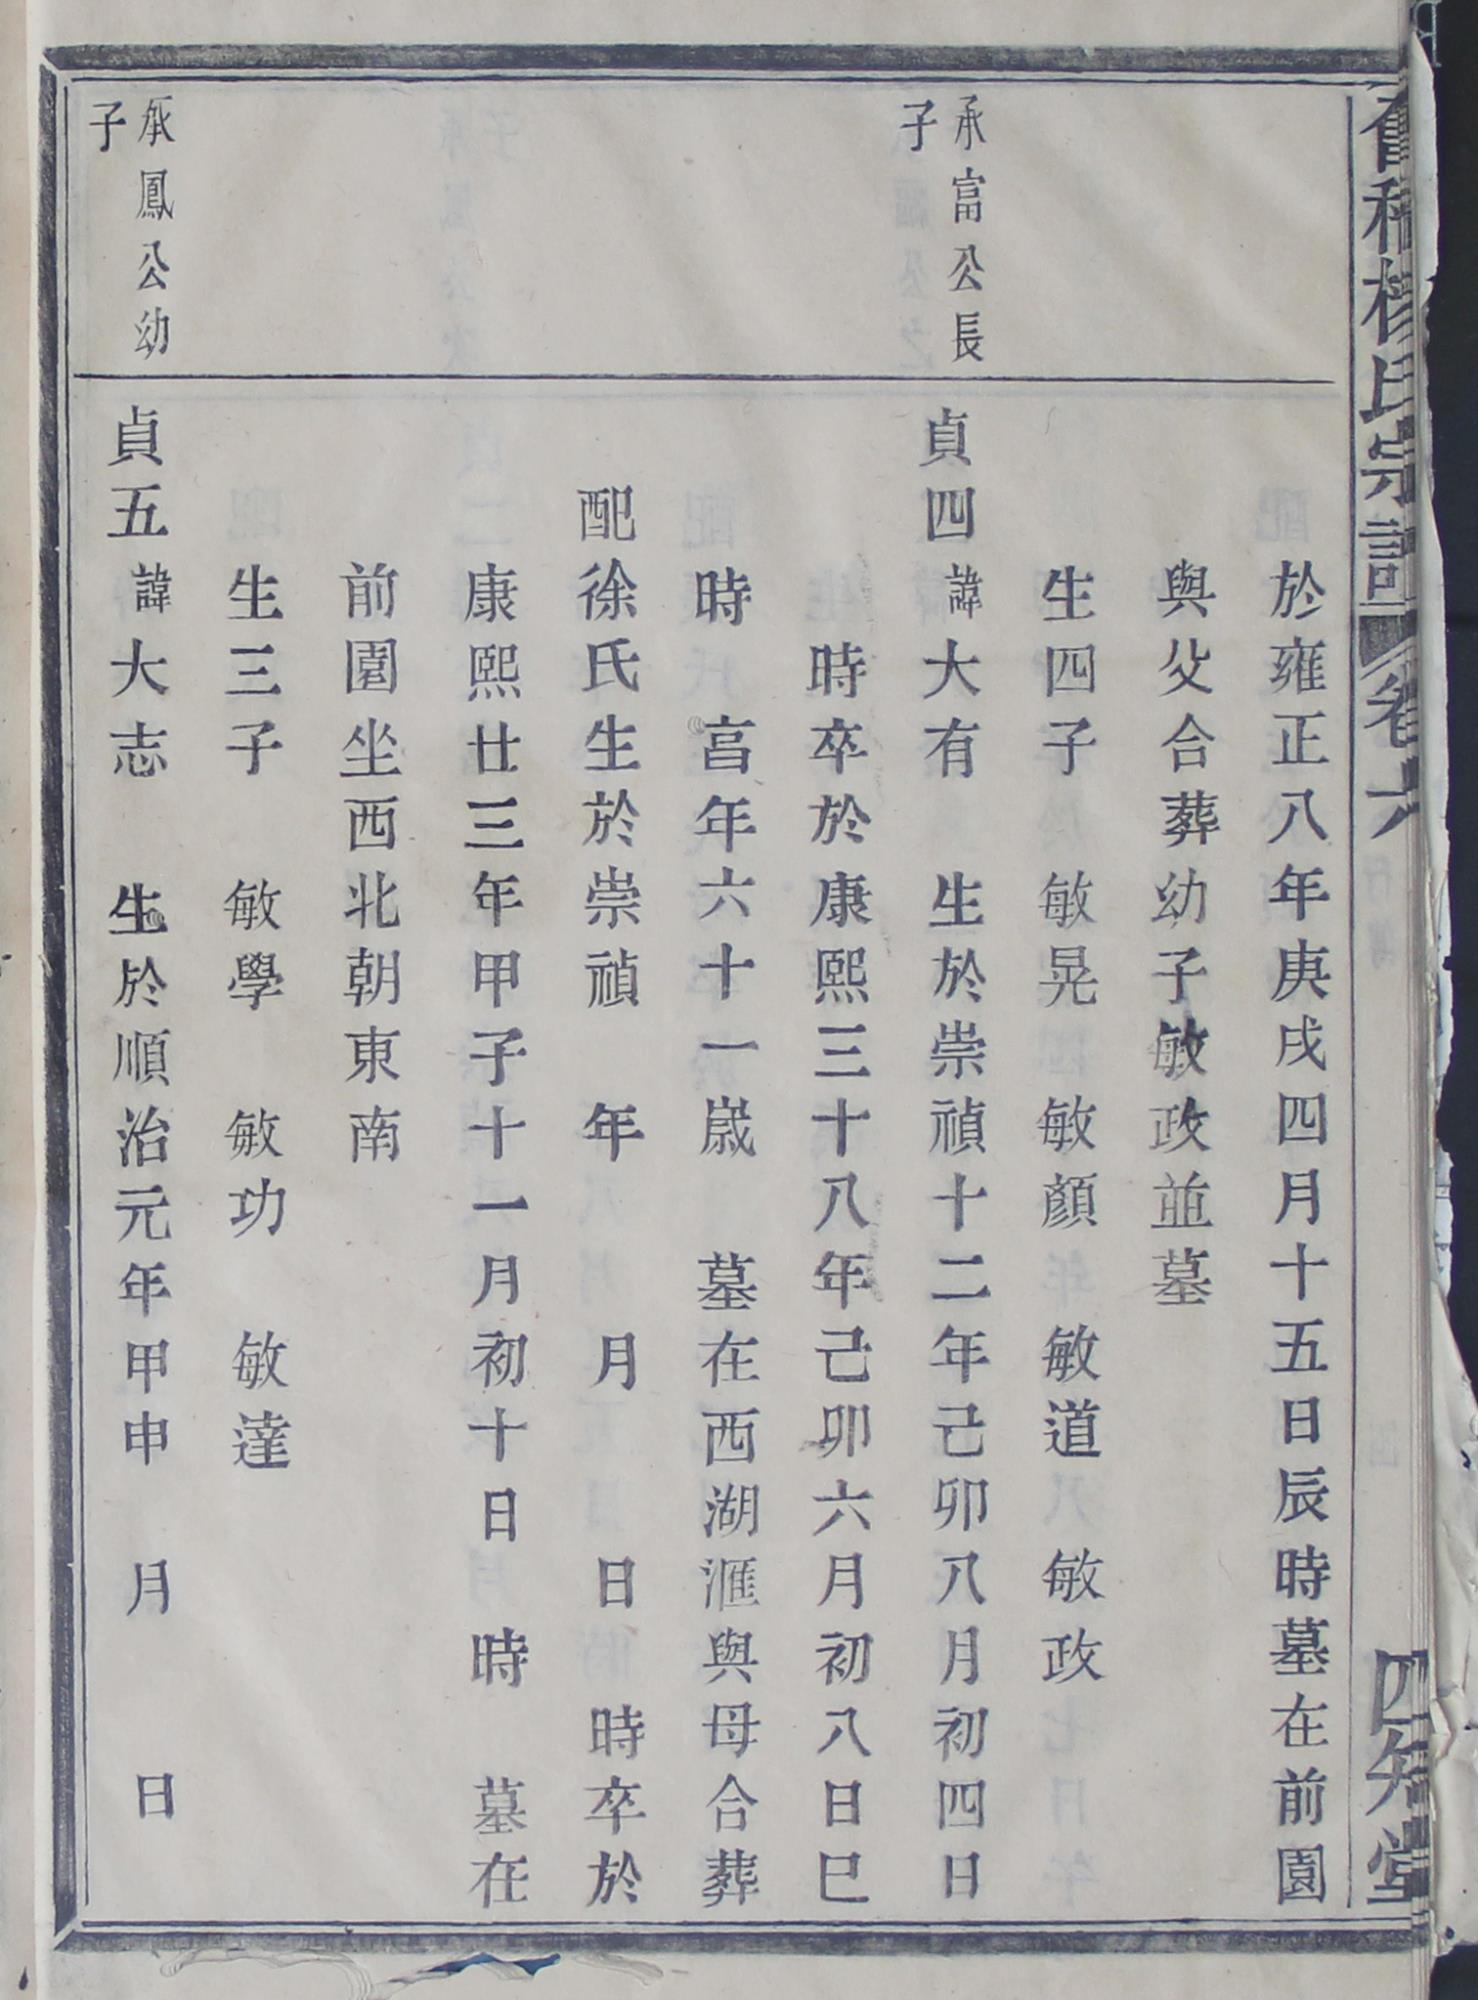 舊程楊氏宗譜 卷六 四知堂
於雍正八年庚戌四月十五日辰時墓在前園
與父合葬幼子敏政並墓
生四子 敏晃 敏顏 敏道 敏政
承富公長
子
貞四諱大有 生於崇禎十二年己卯八月初四日
時卒於康熙三十八年己卯六月初八日巳
時 亯年六十一歲 墓在西湖滙與母合葬
配徐氏生於崇禎 年 月 日 時卒於
康熙廿三年甲子十一月初十日 時 墓在
前園坐西北朝東南
生三子 敏學 敏功 敏達
承鳳公幼
子
貞五諱大志 生於順治元年甲申 月 日